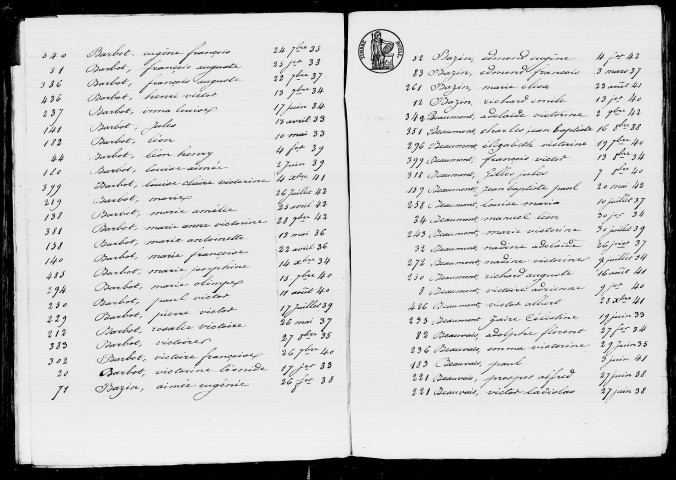 340 Barbot, eugène françois 24 7bre 35
31 Barbot, françois auguste 25 jer 33
336 Barbot, françois auguste 22 9bre 37
436 Barbot, henri victor 13 9bre 34
237 Barbot, irma louise 17 juin 34
141 Barbot, Jules 13 avril 33
182 Barbot, léon 10 mai 33
44 Barbot, léon henry 4 fer 39
180 Barbot, louise aimée 2 juin 39
399 Barbot, louise claire victorine 4 xbre 41
219 Barbot, marie 26 juillet 42
138 Barbot, marie amélie 25 avril 42
381 Barbot, marie anne victorine 28 9bre 42
158 Barbot, marie antoinette 13 mai 36
140 Barbot, marie françoise 22 avril 36
485 Barbot, marie josephine 14 xbre 34
294 Barbot, marie olimpe 15 7bre 40
250 Barbot, paul victor 11 août 40
229 Barbot, pierre victor 17 juillet 39
212 Barbot, rosalie victoire 26 mai 37
383 Barbot, victoire 27 8bre 35
302 Barbot, victoire françoise 26 7bre 40
20 Barbot, victorine léonide 17 jer 33
71 Bazin, aimée eugénie 26 fer 38
32 Bazin, edmond eugène 4 fer 42
83 Bazin, edmond françois 3 mars 37
261 Bazin, marie elisa 23 août 41
12 Bazin, richard emile 13 jer 40
342 Beaumont, adelaide victorine 2 9bre 42
351 Beaumont, charles jean baptiste 16 8bre 38
296 Beaumont, elizabeth victorine 19 7bre 40
399 Beaumont, françois victor 13 8bre 34
318 Beaumont, Gilles jules 7 8bre 40
159 Beaumont, jean baptiste paul 20 mai 42
258 Beaumont, louise maria 10 juillet 37
24 Beaumont, manuel léon 30 jer 34
243 Beaumont, marie victorine 30 juillet 39
32 Beaumont, nadine adelaide 26 jer 37
272 Beaumont, nadine victorine 9 juillet 34
250 Beaumont, richard auguste 16 août 41
8 Beaumont, victoire adrienne 9 jer 40
426 Beaumont, victor albert 28 xbre 41
233 Beaumont, zaïre Célestine 19 juin 33
82 Beauvais, adolphe florent 27 fer 34
236 Beauvais, emma victorine 29 juin 35
183 Beauvais, paul 3 juin 41
221 Beauvais, prosper alfred 27 juin 38
221 Beauvais, victor ladislas 27 juin 38